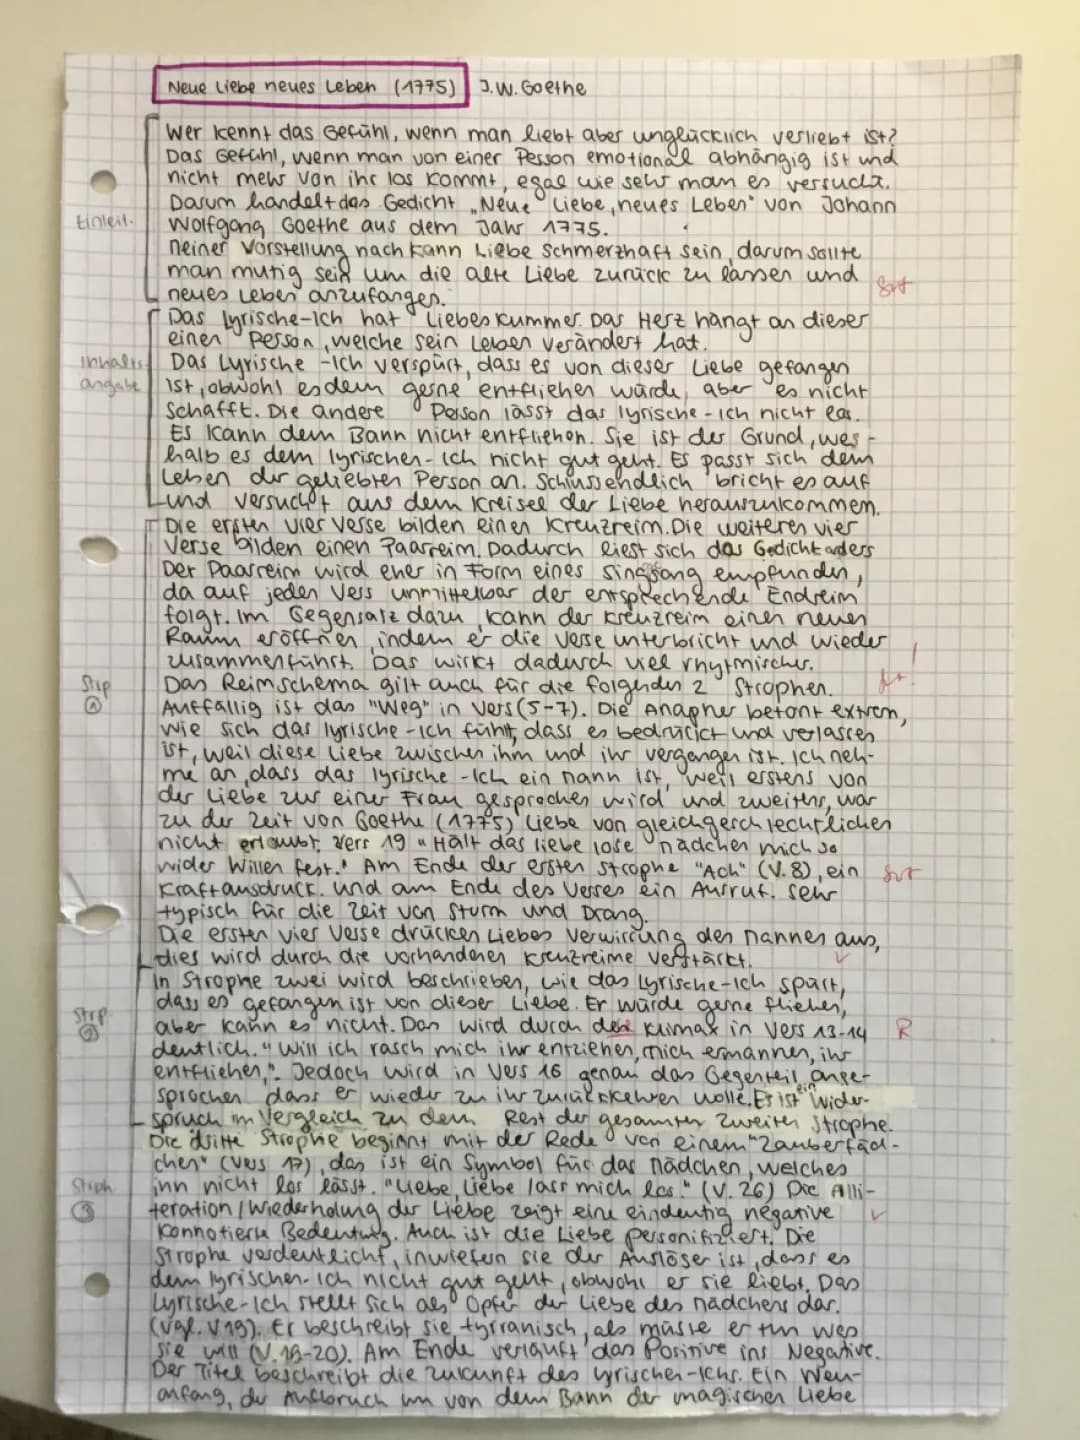 Neue Liebe neues Leben (1775) J.W. Goethe
Wer kennt das Gefühl, wenn man liebt aber unglücklich verliebt ist?
Das Gefühl, wenn man von einer Person emotional abhängig ist und
nicht mehr von ihr los kommt, egal wie sehr man es versucht.
Darum handelt das Gedicht „Neue Liebe, neues Leben" von Johann
Einleit.
Wolfgang Goethe aus dem Jahr 1775.
Meiner Vorstellung nach kann Liebe schmerzhaft sein, darum sollte
man mutig sein um die alte Liebe zurück zu lassen und
gut
neues Leben anzufangen.
Das lyrische-Ich hat Liebeskummer. Das Herz hängt an dieser
einen Person, welche sein Leben verändert hat.
Inhalts
angabe
Das Lyrische-Ich verspürt, dass es von dieser Liebe gefangen
ist, obwohl es dem gerne entfliehen würde, aber es nicht
schafft. Die andere Person lässt das lyrische-Ich nicht los.
Es kann dem Bann nicht entfliehen. Sie ist der Grund, wes-
halb es dem lyrischen-Ich nicht gut geht. Es passt sich dem
Leben der geliebten Person an. Schlussendlich bricht es auf
und versucht aus dem Kreisel der Liebe herauszukommen.
Die ersten vier Verse bilden einen Kreuzreim. Die weiteren vier
Verse bilden einen Paarreim. Dadurch liest sich das Gedicht anders
Der Paarreim wird eher in Form eines Singsang empfunden,
da auf jeden Vers unmittelbar der entsprechende Endreim
folgt. Im Gegensatz dazu, kann der Kreuzreim einen neuen
Raum eröffnen, indem er die Verse unterbricht und wieder
zusammenführt. Das wirkt dadurch viel rhytmischer.
Strp
1
Das Reimschema gilt auch für die folgenden 2 Strophen.
Auffällig ist das "Weg" in Vers (5-7). Die Anapher betont extrem,
wie sich das lyrische-Ich fühlt, dass es bedrückt und verlassen
ist, weil diese Liebe zwischen ihm und ihr vergangen ist. Ich neh-
me an, dass das lyrische-Ich ein Mann ist, weil erstens von
der Liebe zur einer Frau gesprochen wird und zweitens, war
zu der Zeit von Goethe (1775) Liebe von gleichgeschlechtlichen
nicht erlaubt. Vers 19 "Hält das liebe lose Mädchen mich so
wider Willen fest." Am Ende der ersten Strophe "Ach" (V.8), ein
gut
Kraftausdruck. Und am Ende des Verses ein Ausruf. Sehr
typisch für die Zeit von Sturm und Drang.
Die ersten vier Verse drücken Liebes Verwirrung des Mannes aus,
dies wird durch die vorhandenen Kreuzreime verstärkt.
In Strophe zwei wird beschrieben, wie das Lyrische-Ich spürt,
dass es gefangen ist von dieser Liebe. Er würde gerne fliehen,
Strp
2
aber kann es nicht. Das wird durch der Klimax in Vers 13-14
R
deutlich. "Will ich rasch mich ihr entziehen, mich ermannen, ihr
entfliehen,". Jedoch wird in Vers 16 genau das Gegenteil ange-
sprochen dass er wieder zu ihr zurückkehren wolle. Es ist ein Wider-
spruch im Vergleich zu dem Rest der gesamten zweiten Strophe.
Die dritte Strophe beginnt mit der Rede von einem "Zauberfäd-
chen" (Vers 17), das ist ein Symbol für das Mädchen, welches
Stroph
3
ihn nicht los lässt. "Liebe, Liebe lass mich los." (V. 26) Die Alli-
teration / Wiederholung der Liebe zeigt eine eindeutig negative
konnotierte Bedeutung. Auch ist die Liebe personifiziert. Die
Strophe verdeutlicht, inwiefern sie der Auslöser ist, dass es
dem lyrischen-Ich nicht gut geht, obwohl er sie liebt. Das
Lyrische-Ich stellt sich als Opfer der Liebe des Mädchens dar.
(vgl. V19). Er beschreibt sie tyrranisch, als müsse er tun was
sie will (V.19-20). Am Ende verläuft das Positive ins Negative.
Der Titel beschreibt die Zukunft des lyrischen-Ichs. Ein Neu-
anfang, der Aufbruch um von dem Bann der magischen Liebe